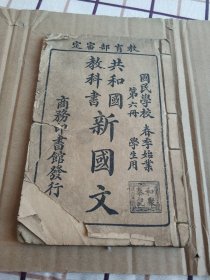 教育部審定
國民學校 春季始業
第六冊 學生用
共和國
教科書
新國文
商務印書館發行